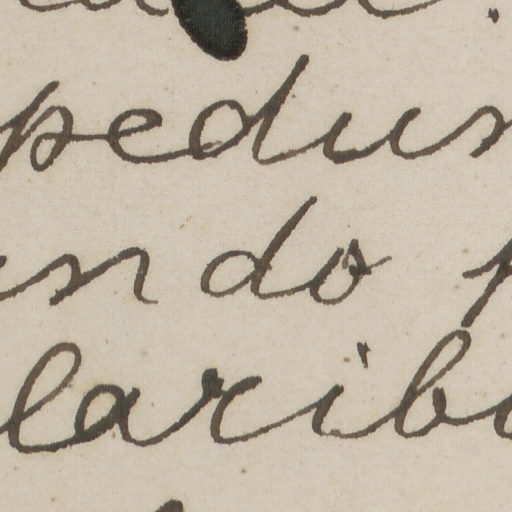 pedun
en do p
laribu